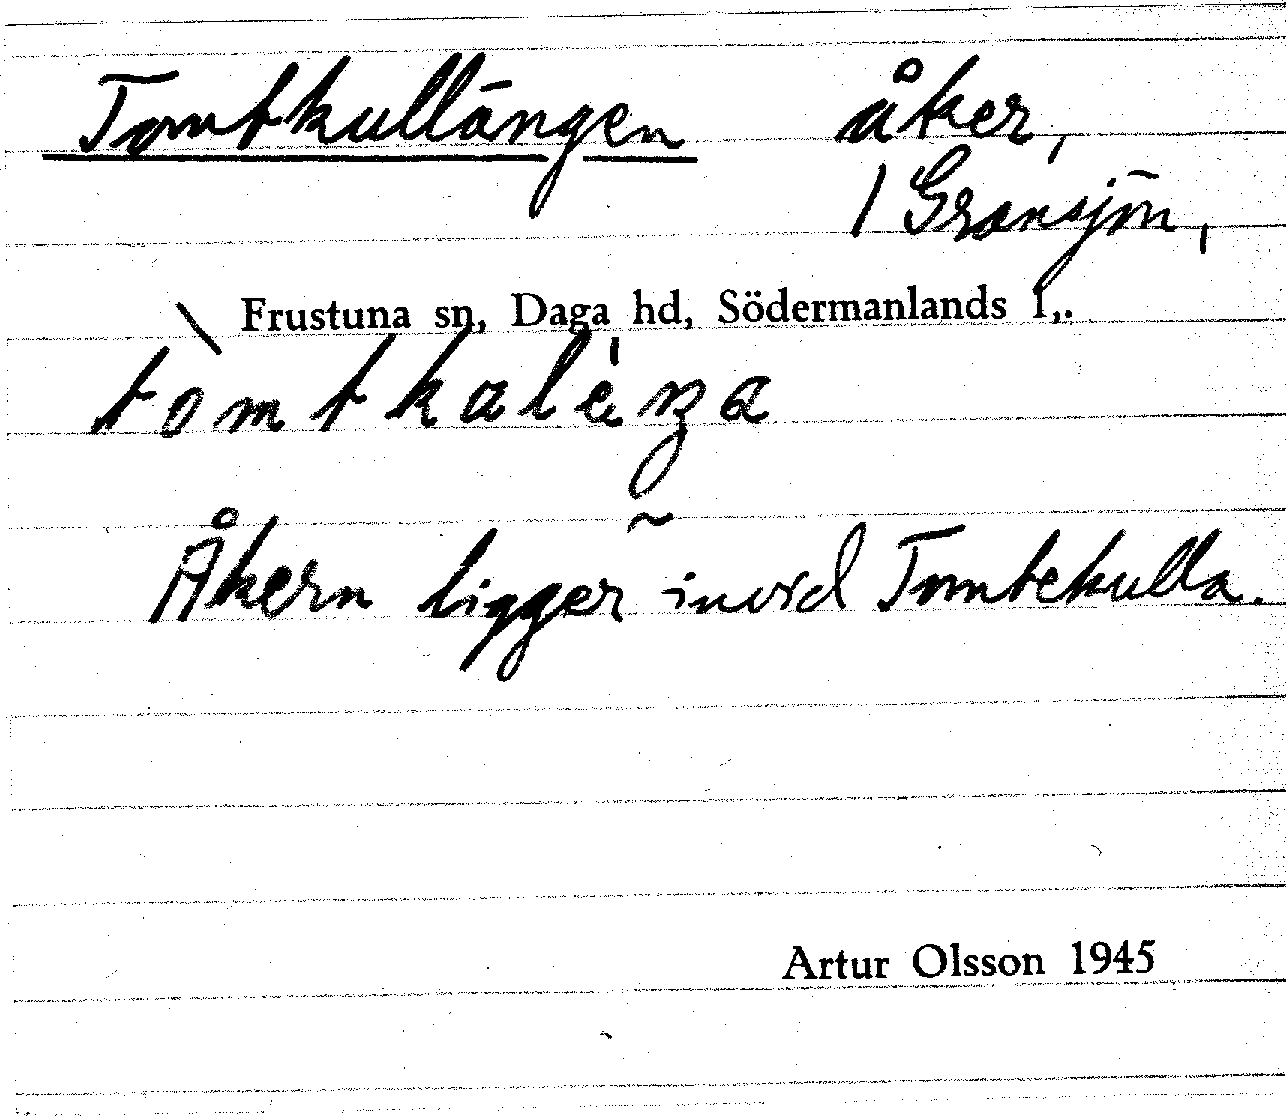 Tomtkullängen åker,
/ Gransjön,
Frustuna sn, Daga hd, Södermanlands l,.
Åkern ligger invid Tomtekulla.
Artur Olsson 1945